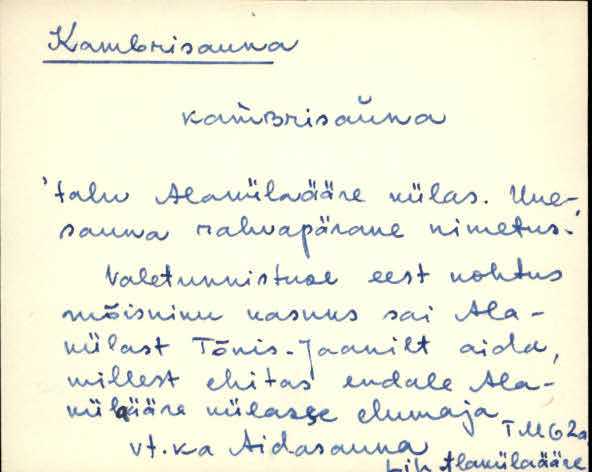 Kambrisauna
kam̆Brisaŭna
'talu Alakülaääre külas. Uue-
sauna rahvapärane nimetus.'
Valetunnistuse eest kohtus
mõisniku kasuks sai Ala-
külast Tõnis-Jaanilt aida,
millest ehitas endale Ala-
külaääre külasse elumaja
TM62a
vt. ka Aidasauna
Lih Alakülaääre